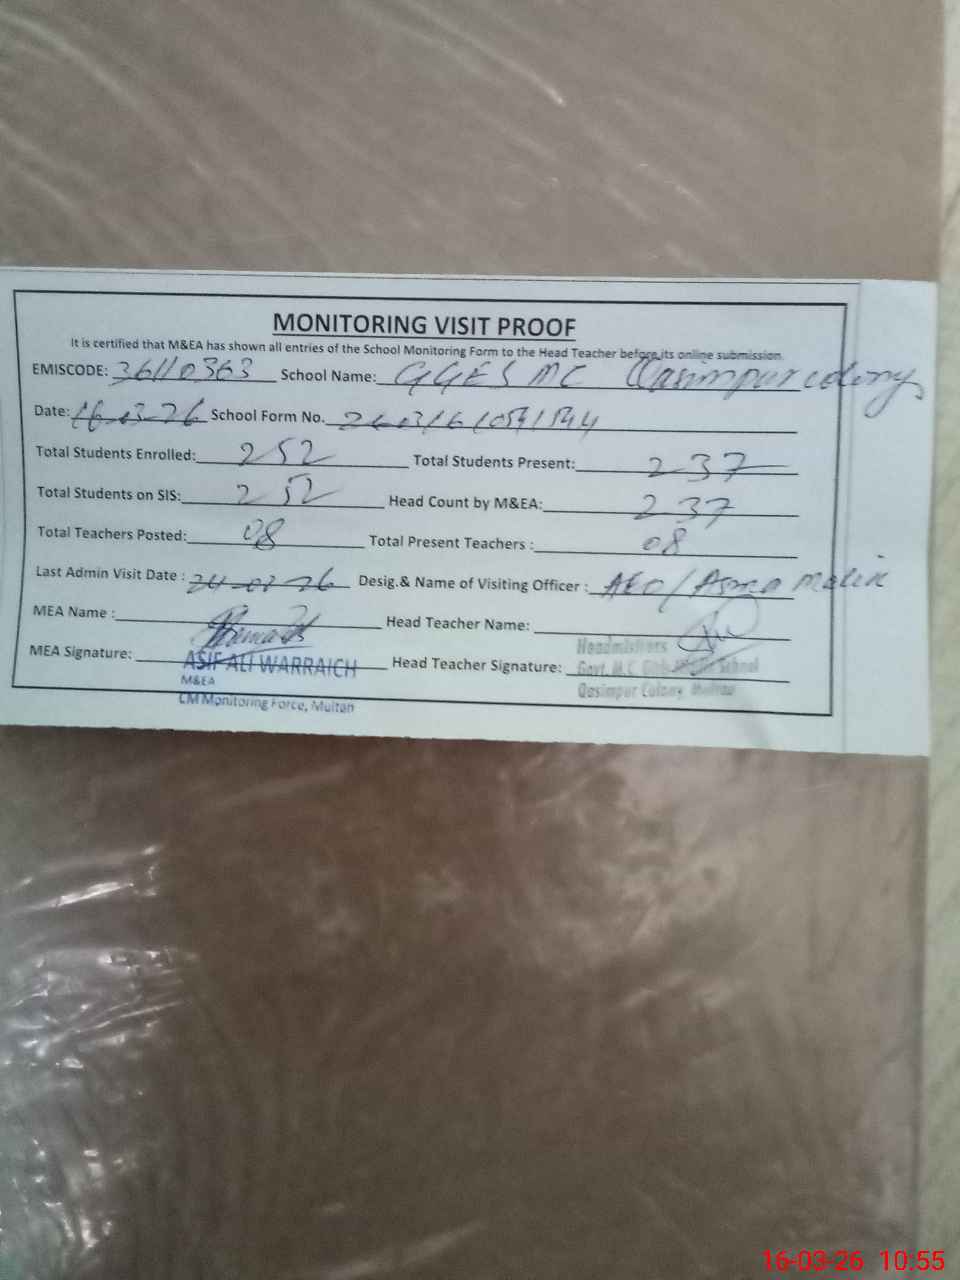 MONITORING VISIT PROOF
It is certified that M&EA has shown all entries of the School Monitoring Form to the Head Teacher before its online submission.
EMISCODE: 36110363 School Name: GGES MC Qasimpur colony
Date: 16-03-26 School Form No.
Total Students Enrolled: 252 Total Students Present: 237
Total Students on SIS: 252 Head Count by M&EA: 237
Total Teachers Posted: 08 Total Present Teachers : 08
Last Admin Visit Date : 24-02-26 Desig.& Name of Visiting Officer : AEO/Asma Malik
MEA Name : Head Teacher Name:
MEA Signature: ASIF ALI WARRAICH Head Teacher Signature:
Headmistress
Govt. M.C. Girls School
Qasimpur Colony Multan
M&EA
CM Monitoring Force, Multan
16-03-26 10:55